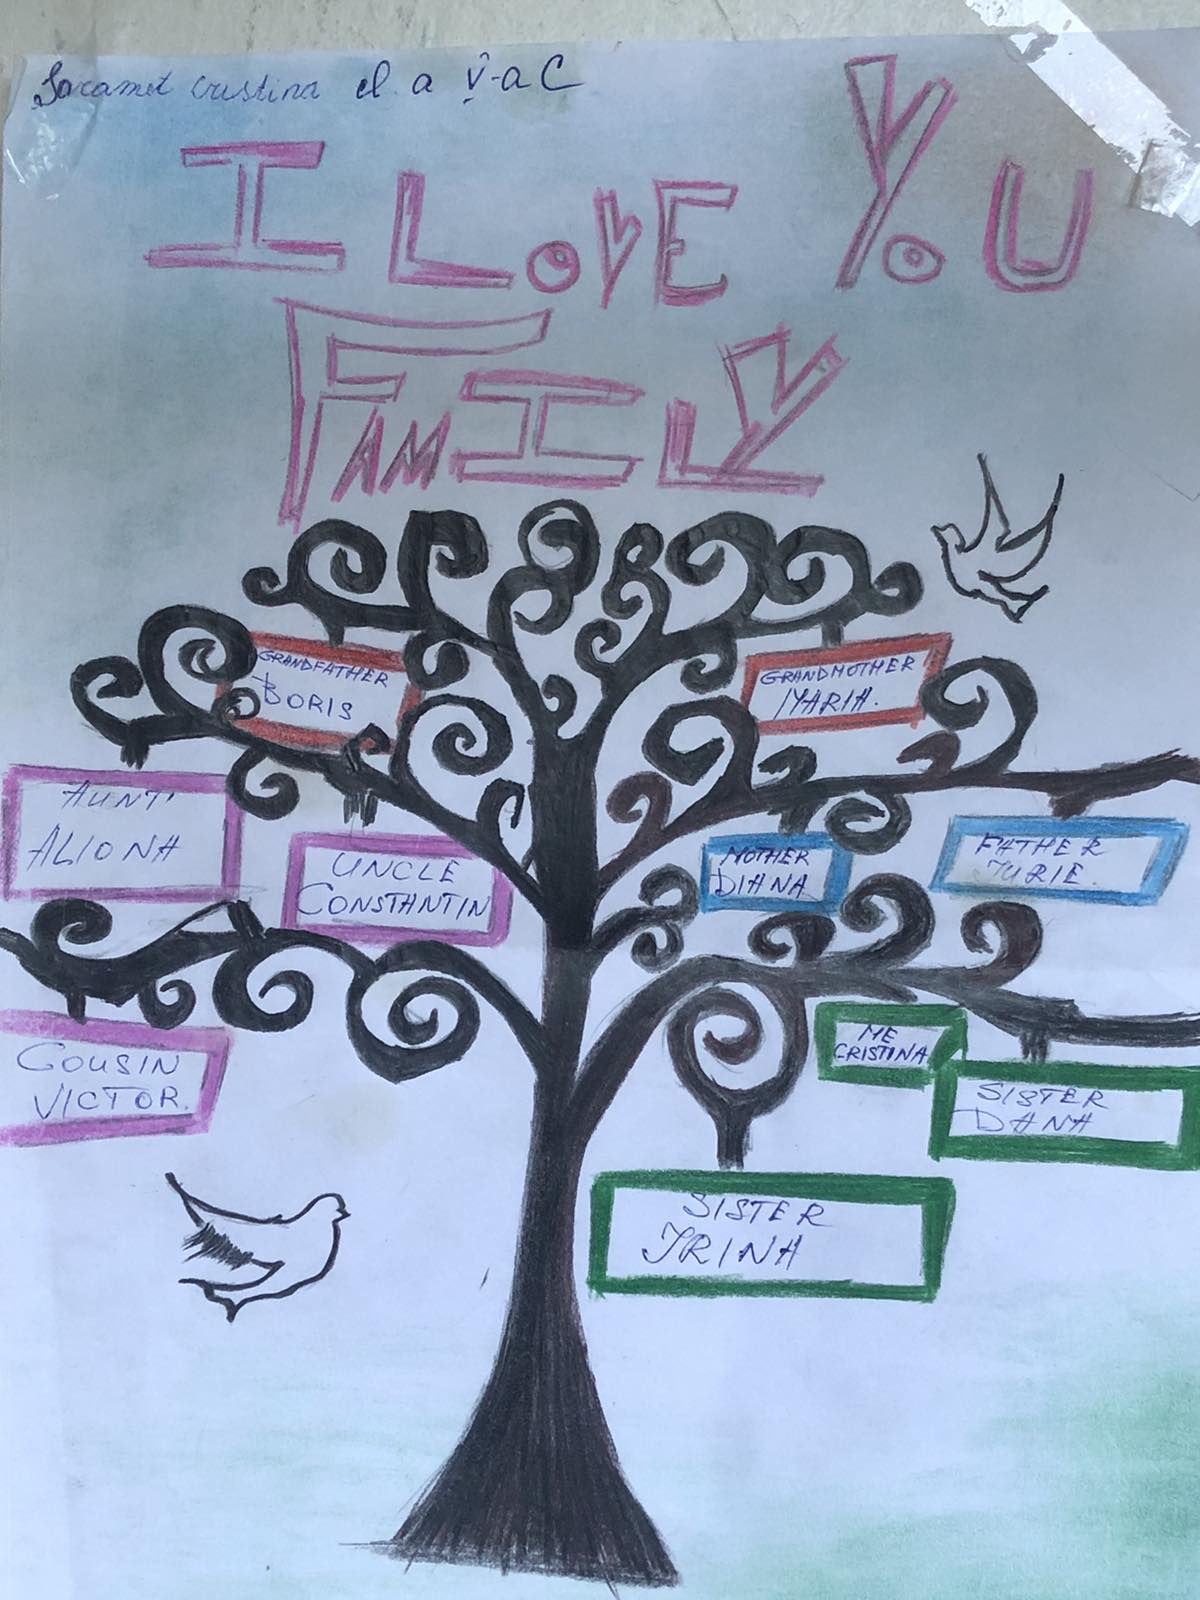 Saramet cristina cl. a V-a C
I LOVE YOU
FAMILY
GRANDFATHER
BORIS
GRANDMOTHER
MARIA.
AUNT
ALIONA
UNCLE
CONSTANTIN
MOTHER
DIANA
FATHER
IURIE.
COUSIN
VICTOR.
ME
CRISTINA
SISTER
DANA
SISTER
IRINA